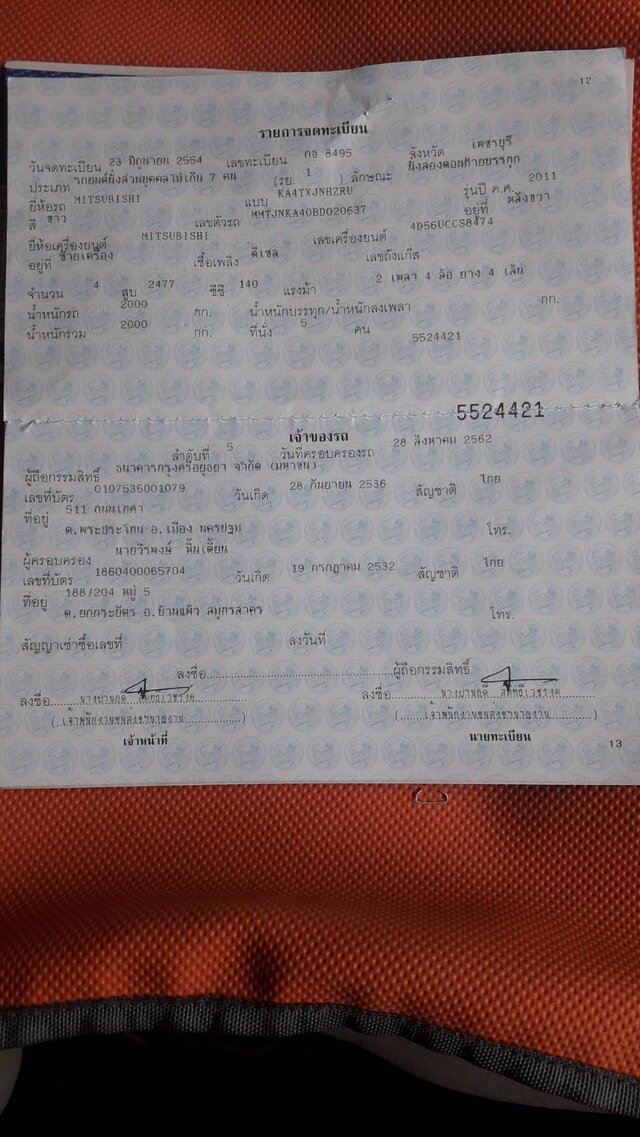 12
รายการจดทะเบียน
วันจดทะเบียน 23 มิถุนายน 2554 เลขทะเบียน กธ 8495 จังหวัด เพชรบุรี
ประเภท รถยนต์นั่งส่วนบุคคลไม่เกิน 7 คน (รย. 1 ) ลักษณะ นั่งสองตอนท้ายบรรทุก
ยี่ห้อรถ MITSUBISHI แบบ KA4TXJNHZRU รุ่นปี ค.ศ. 2011
สี ขาว เลขตัวรถ MMTJNKA40BD020637 อยู่ที่ หลังขวา
ยี่ห้อเครื่องยนต์ MITSUBISHI เลขเครื่องยนต์ 4D56UCCS8474
อยู่ที่ ซ้ายเครื่อง เชื้อเพลิง ดีเซล เลขถังแก๊ส
จำนวน 4 สูบ 2477 ซีซี 140 แรงม้า 2 เพลา 4 ล้อ ยาง 4 เส้น
น้ำหนักรถ 2000 กก. น้ำหนักบรรทุก/น้ำหนักลงเพลา กก.
น้ำหนักรวม 2000 กก. ที่นั่ง 5 คน 5524421
5524421
เจ้าของรถ
ลำดับที่ 5 วันที่ครอบครองรถ 28 สิงหาคม 2562
ผู้ถือกรรมสิทธิ์ ธนาคารกรุงศรีอยุธยา จำกัด (มหาชน)
เลขที่บัตร 0107536001079 วันเกิด 28 กันยายน 2536 สัญชาติ ไทย
ที่อยู่ 511 ถนนเทศา
ต.พระประโทน อ.เมือง นครปฐม โทร.
ผู้ครอบครอง นายวีรพงษ์
เลขที่บัตร 1860400065704 วันเกิด 19 กรกฎาคม 2532 สัญชาติ ไทย
ที่อยู่ 188/204 หมู่ 5
ต.ยกกระบัตร อ.บ้านแพ้ว สมุทรสาคร โทร.
สัญญาเช่าซื้อเลขที่ ลงวันที่
ลงชื่อ ผู้ถือกรรมสิทธิ์
ลงชื่อ ลงชื่อ
(เจ้าพนักงานขนส่งชำนาญงาน) (เจ้าพนักงานขนส่งชำนาญงาน)
เจ้าหน้าที่ นายทะเบียน
13